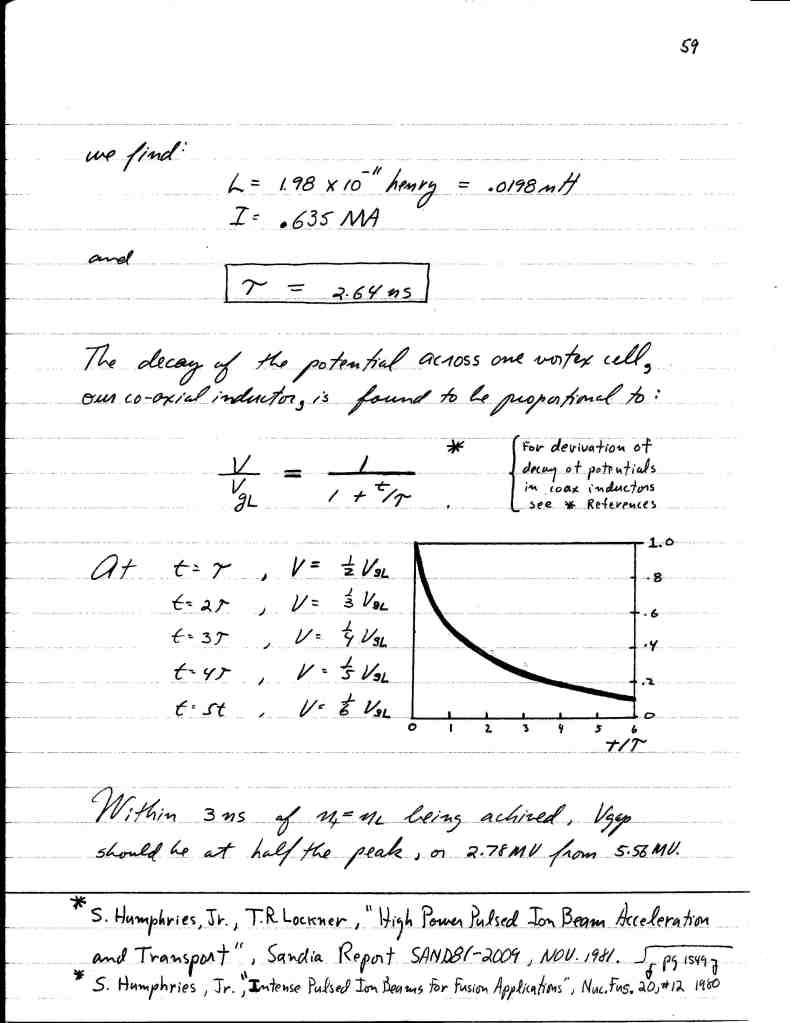 59
we find:
L = 1.98 x 10⁻¹¹ henry = .0198 nH
I = .635 MA
and
τ = 2.64 ns
The decay of the potential across one vortex cell,
our co-axial inductor, is found to be proportional to:
V / V_gL = 1 / (1 + t/τ) *
{ For derivation of
decay of potentials
in coax inductors
see * References
At t = τ , V = 1/2 V_gL
t = 2τ , V = 1/3 V_gL
t = 3τ , V = 1/4 V_gL
t = 4τ , V = 1/5 V_gL
t = 5t , V = 1/6 V_gL
1.0
.8
.6
.4
.2
0
0 1 2 3 4 5 6
t/τ
Within 3 ns of = being achived, Vgap
should be at half the peak, or 2.78 MV from 5.56 MV.
* S. Humphries, Jr., T.R. Lockner, "High Power Pulsed Ion Beam Acceleration
and Transport", Sandia Report SAND81-2009, NOV. 1981. pg 1549
* S. Humphries, Jr. "Intense Pulsed Ion Beams for Fusion Applications", Nuc. Fus. 20, #12 1980